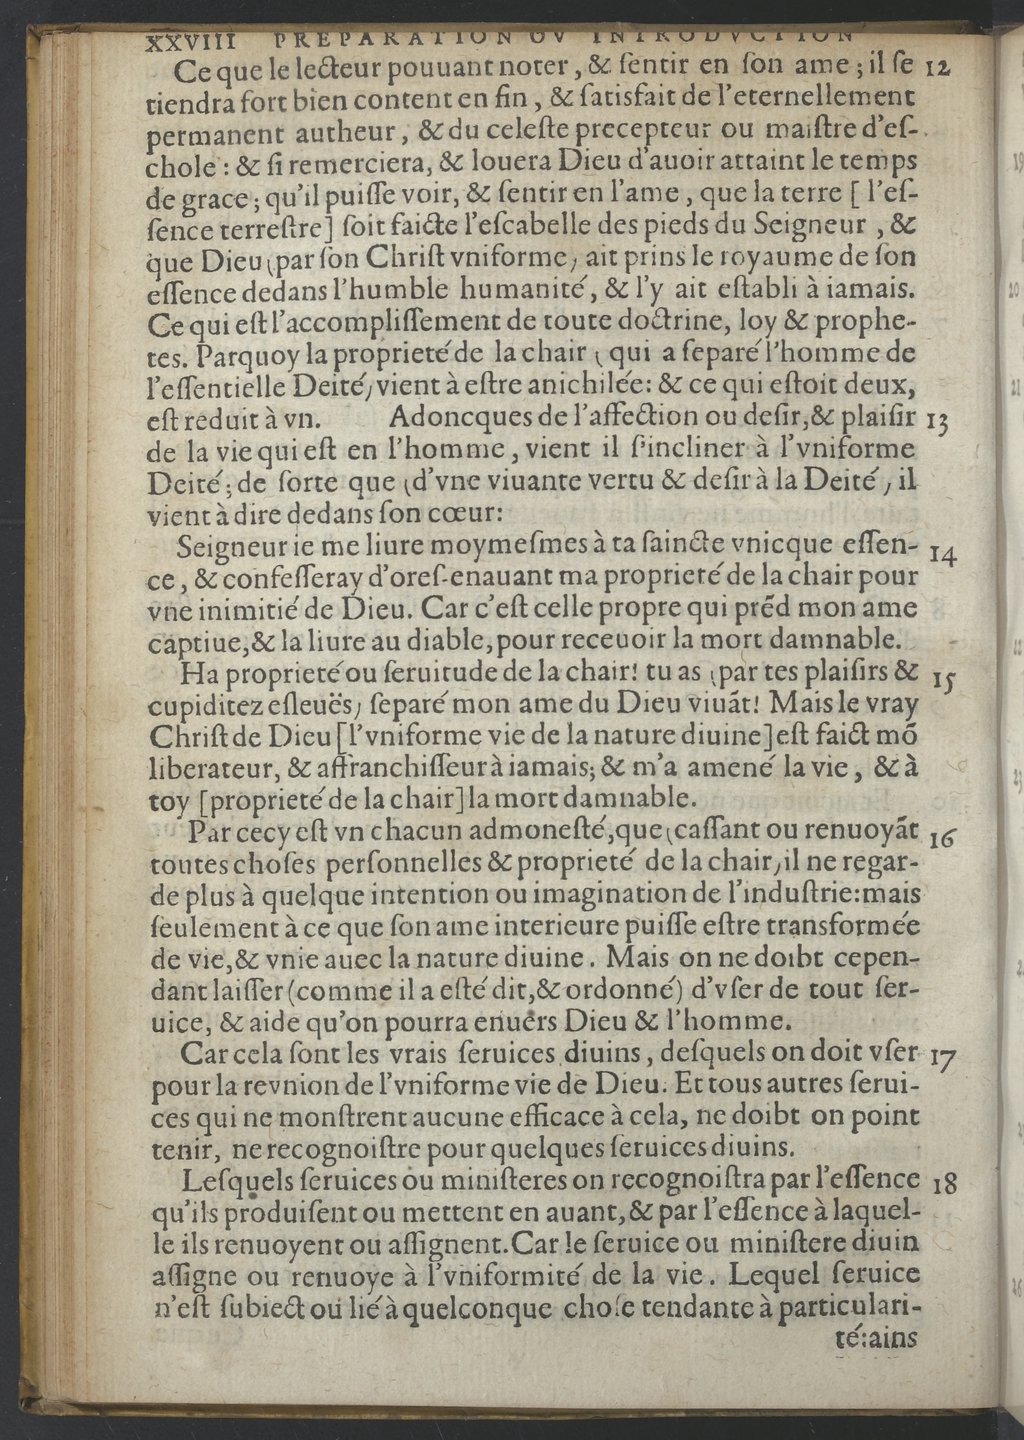 XXVIII PREPARATION OV INTRODVCTION
Ce que le lecteur pouuant noter, & ſentir en ſon ame; il ſe 12
tiendra fort bien content en fin, & ſatisfait de l'eternellement
permanent autheur, & du celeſte precepteur ou maiſtre d'eſ-
chole: & ſi remerciera, & louera Dieu d'auoir attaint le temps
de grace; qu'il puiſſe voir, & ſentir en l'ame, que la terre [l'eſ-
ſence terreſtre] ſoit faicte l'eſcabelle des pieds du Seigneur, &
que Dieu (par ſon Chriſt vniforme) ait prins le royaume de ſon
eſſence dedans l'humble humanité, & l'y ait eſtabli à iamais.
Ce qui eſt l'accompliſſement de toute doctrine, loy & prophe-
tes. Parquoy la proprieté de la chair (qui a ſeparé l'homme de
l'eſſentielle Deité) vient à eſtre anichilée: & ce qui eſtoit deux,
eſt reduit à vn. Adoncques de l'affection ou deſir, & plaiſir 13
de la vie qui eſt en l'homme, vient il ſ'incliner à l'vniforme
Deité; de ſorte que (d'vne viuante vertu & deſir à la Deité) il
vient à dire dedans ſon cœur:
Seigneur ie me liure moymeſmes à ta ſaincte vnicque eſſen- 14
ce, & confeſſeray d'oreſ-enauant ma proprieté de la chair pour
vne inimitié de Dieu. Car c'eſt celle propre qui prẽd mon ame
captiue, & la liure au diable, pour receuoir la mort damnable.
Ha proprieté ou ſeruitude de la chair! tu as (par tes plaiſirs & 15
cupiditez eſleuës) ſeparé mon ame du Dieu viuãt! Mais le vray
Chriſt de Dieu [l'vniforme vie de la nature diuine] eſt faict mõ
liberateur, & affranchiſſeur à iamais; & m'a amené la vie, & à
toy [proprieté de la chair] la mort damnable.
Par cecy eſt vn chacun admoneſté, que (caſſant ou renuoyãt 16
toutes choſes perſonnelles & proprieté de la chair) il ne regar-
de plus à quelque intention ou imagination de l'induſtrie: mais
ſeulement à ce que ſon ame interieure puiſſe eſtre transformée
de vie, & vnie auec la nature diuine. Mais on ne doibt cepen-
dant laiſſer (comme il a eſté dit, & ordonné) d'vſer de tout ſer-
uice, & aide qu'on pourra enuers Dieu & l'homme.
Car cela ſont les vrais ſeruices diuins, deſquels on doit vſer 17
pour la revnion de l'vniforme vie de Dieu. Et tous autres ſerui-
ces qui ne monſtrent aucune efficace à cela, ne doibt on point
tenir, ne recognoiſtre pour quelques ſeruices diuins.
Leſquels ſeruices ou miniſteres on recognoiſtra par l'eſſence 18
qu'ils produiſent ou mettent en auant, & par l'eſſence à laquel-
le ils renuoyent ou aſſignent. Car le ſeruice ou miniſtere diuin
aſſigne ou renuoye à l'vniformité de la vie. Lequel ſeruice
n'eſt ſubiect ou lié à quelconque choſe tendante à particulari-
té: ains